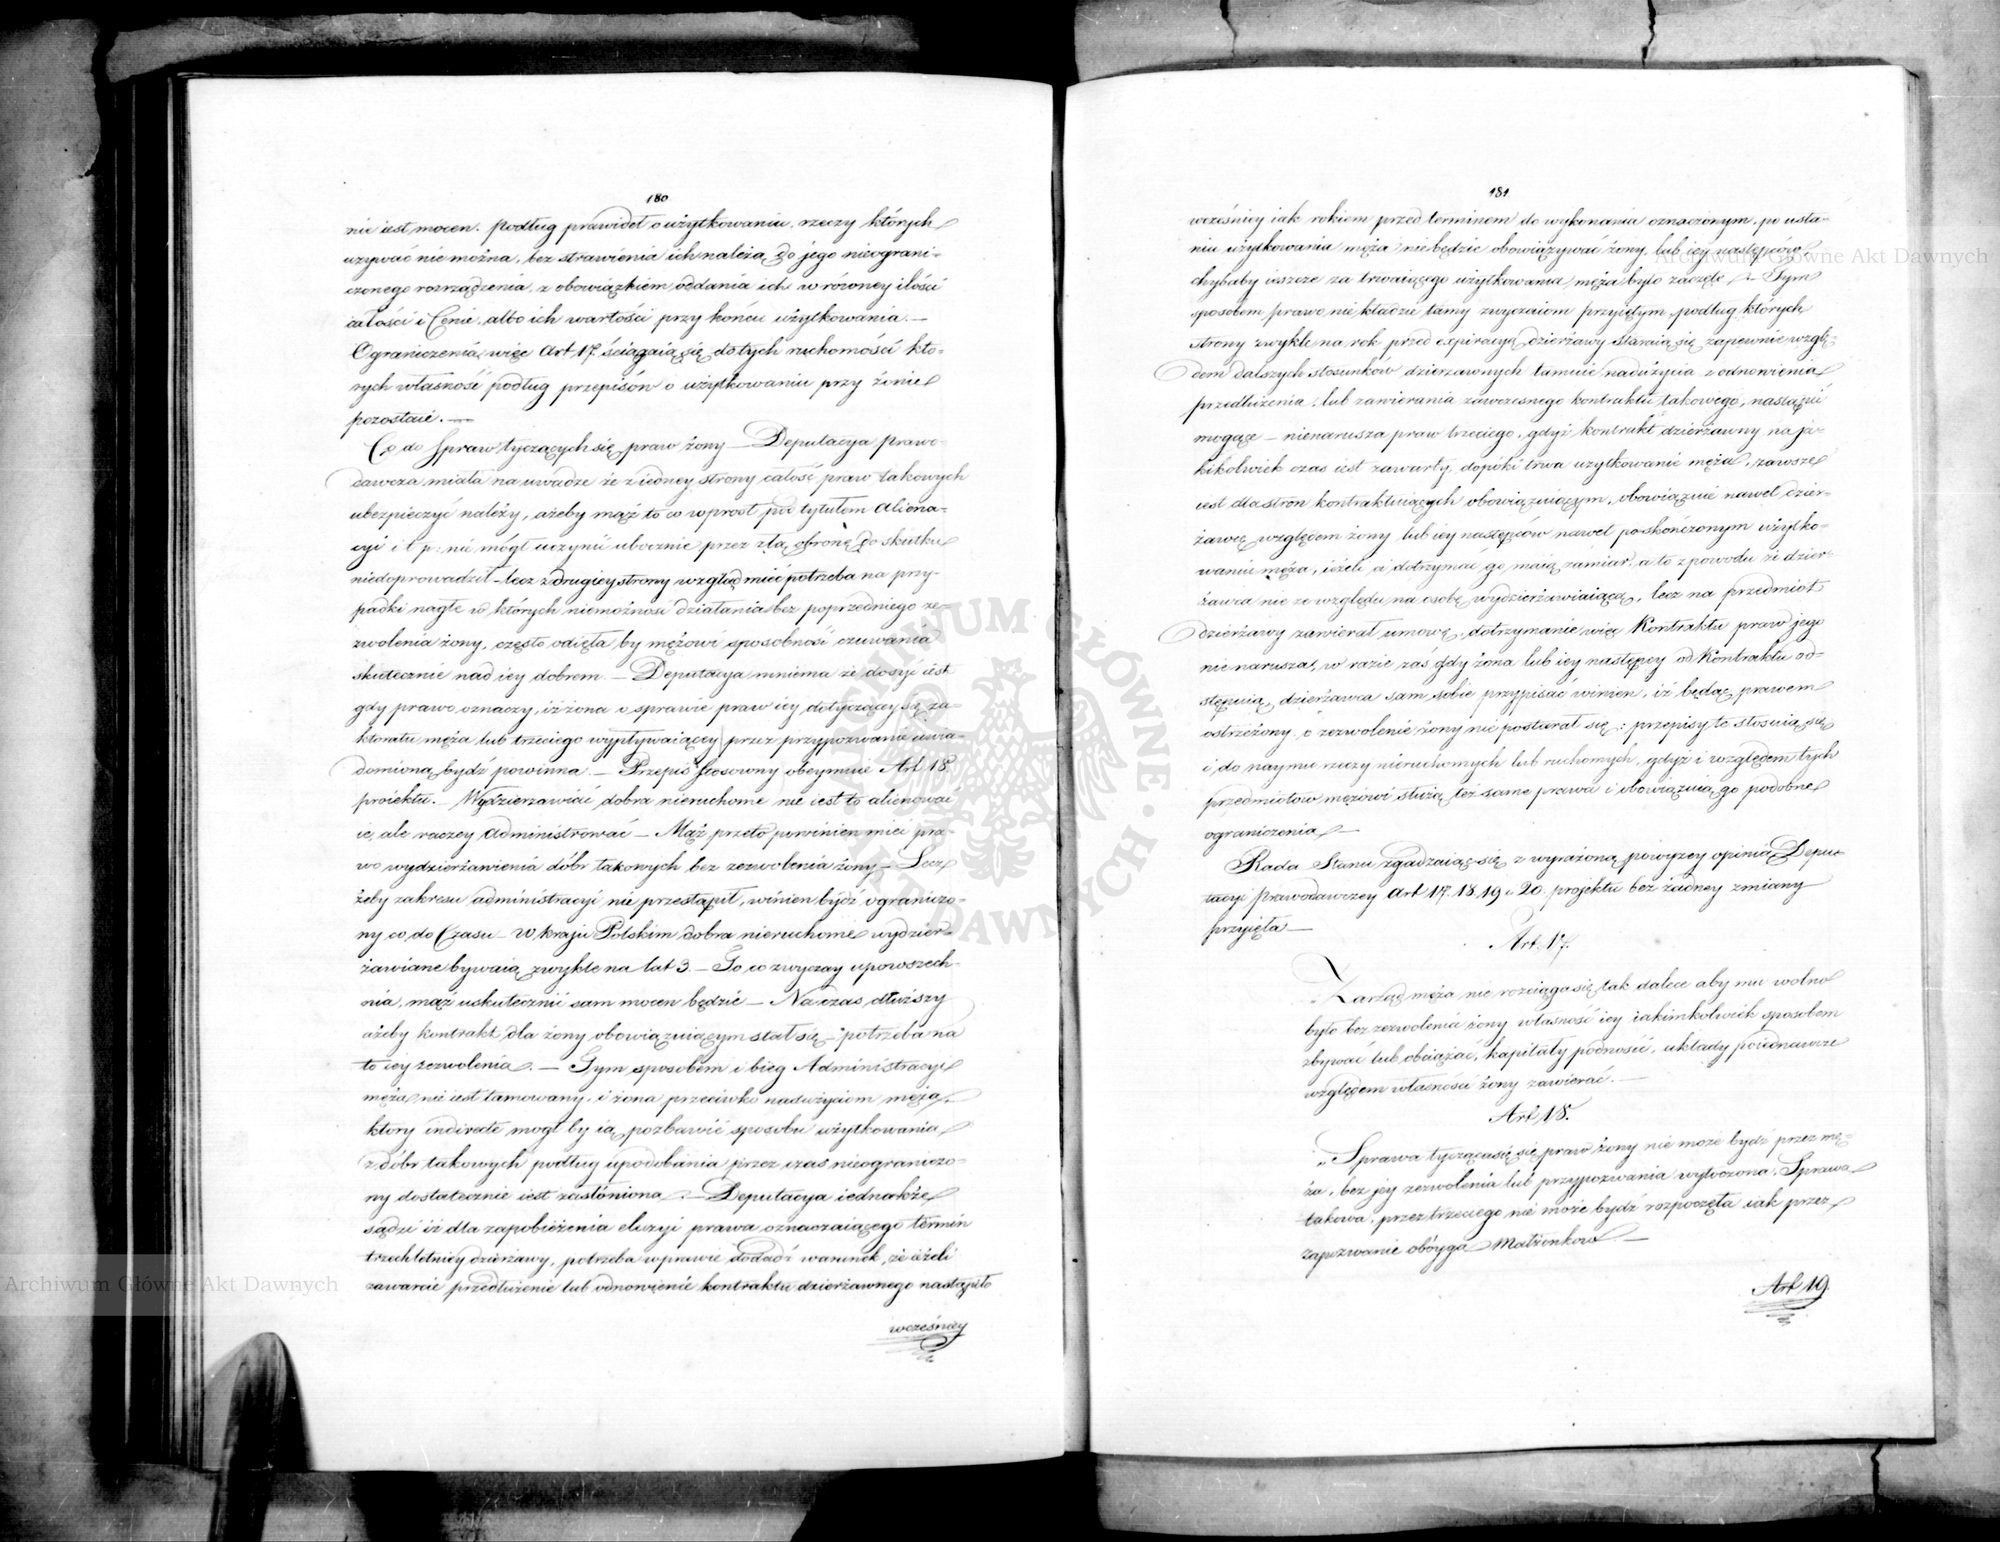 180
nie iest mocen. Podług prawideł o użytkowaniu rzeczy których
używać nie można, bez strawienia ich należą do jego nieograni-
czonego rozrządzenia z obowiązkiem oddania ich w równey ilości
całości i Cenie, albo ich wartości przy końcu użytkowania. —
Ograniczenia więc Art 17 ściągaią się do tych ruchomości któ-
rych własność podług przepisów o użytkowaniu przy żonie
pozostaie. —
Co do Spraw tyczących się praw żony — Deputacya prawo-
dawcza miała na uwadze że z iedney strony całość praw takowych
ubezpieczyć należy, ażeby mąż to co wprost pod tytułem aliena-
cyi i t p: nie mógł uczynić ubocznie przez złą obronę do skutku
niedoprowadził — lecz z drugiey strony wzgląd mieć potrzeba na przy-
padki nagłe w których niemożność działania bez poprzedniego ze-
zwolenia żony, często odięła by mężowi sposobność czuwania
skutecznie nad iey dobrem. — Deputacya mniema że dosyć iest
gdy prawo oznaczy, iż żona o sprawie praw iey dotyczącey się za-
ktoratu męża lub trzeciego wypływaiącey przez przypozwanie uwia-
domioną bydź powinna. — Przepis stosowny obeymuie Art 18
proiektu. Wydzierzawiać dobra nieruchome nie iest to alienować
ie, ale raczey administrować — Mąż przeto powinien mieć pra-
wo wydzierżawienia dóbr takowych bez zezwolenia żony — Lecz
żeby zakresu administracyi nie przestąpił, winien bydź ograniczo-
ny co do Czasu — W kraju Polskim dobra nieruchome wydzier-
żawiane bywaią zwykle na lat 3. — To co zwyczay upowszech-
nia, mąż uskutecznić sam mocen będzie — Na czas dłuższy
ażeby kontrakt dla żony obowiązuiącym stał się — potrzeba na
to iey zezwolenia. — Tym sposobem i bieg Administracyi
męża nie iest tamowany, i żona przeciwko nadużyciom męża
który indirecte mogł by ią pozbawić sposobu użytkowania
z dóbr takowych podług upodobania przez czas nieograniczo-
ny dostatecznie iest zasłoniona. — Deputacya iednakże
sądzi iż dla zapobieżenia eluzyi prawa oznaczaiącego termin
trzechletniey dzierżawy, potrzeba w prawie dodać warunek, że ieżeli
zawarcie przedłużenie lub odnowienie kontraktu dzierżawnego nastąpiło
wcześniey
181
wcześniey iak rokiem przed terminem do wykonania oznaczonym, po usta-
niu użytkowania męża nie będzie obowiązywać żony lub iey następców
chybaby ieszcze za trwaiącego użytkowania męża było zaczęte. — Tym
sposobem prawo nie kładzie tamy zwyczaiom przyiętym, podług których
strony zwykle na rok przed expiracyą dzierżawy staraią się zapewnić wzglę-
dem dalszych stosunków dzierżawnych tamuie nadużycia z odnowienia
przedłużenia, lub zawierania zawczesnego kontraktu takowego, nastąpić
mogące — nienarusza praw trzeciego, gdyż kontrakt dzierżawny na ja-
kikolwiek czas iest zawarty, dopóki trwa użytkowanie męża, zawsze
iest dla stron kontraktuiących obowiązuiącym, obowiązuie nawet dzier-
żawcę względem żony lub iey następców nawet po skończonym użytko-
waniu męża, ieżeli ci dotrzymać go maią zamiar, a to z powodu że dzier-
żawca nie ze względu na osobę wydzierżawiaiącą, lecz na przedmiot
dzierżawy zawierał umowę, dotrzymanie więc Kontraktu praw jego
nie narusza, w razie zaś gdy żona lub iey następcy od Kontraktu od-
stępuią, dzierżawca sam sobie przypisać winien, iż będąc prawem
ostrzeżony, o zezwolenie żony nie postarał się: przepisy te stosuią się
i do naymu rzeczy nieruchomych lub ruchomych, gdyż i względem tych
przedmiotów mężowi służą też same prawa i obowiązuią go podobne
ograniczenia. —
Rada Stanu zgadzaiąc się z wyrażoną powyżey opinią Depu-
tacyi Prawodawczey Art 17. 18. 19 i 20. projektu bez żadney zmiany
przyięła —
Art. 17.
„Zarząd męża nie rozciąga się tak dalece aby mu wolno
było bez zezwolenia żony własność iey iakimkolwiek sposobem
zbywać lub obciążać, kapitały podnosić, układy poiednawcze
względem własności żony zawierać. —
Art 18.
„Sprawa tycząca się praw żony nie może bydź przez mę-
ża, bez jey zezwolenia lub przypozwania wytoczona. Sprawa
takowa, przez trzeciego nie może bydź rozpoczęta iak przez
zapozwanie oboyga Małżonków —
Art 19.
Archiwum Główne Akt Dawnych
Archiwum Główne Akt Dawnych
ARCHIWUM GŁÓWNE AKT DAWNYCH